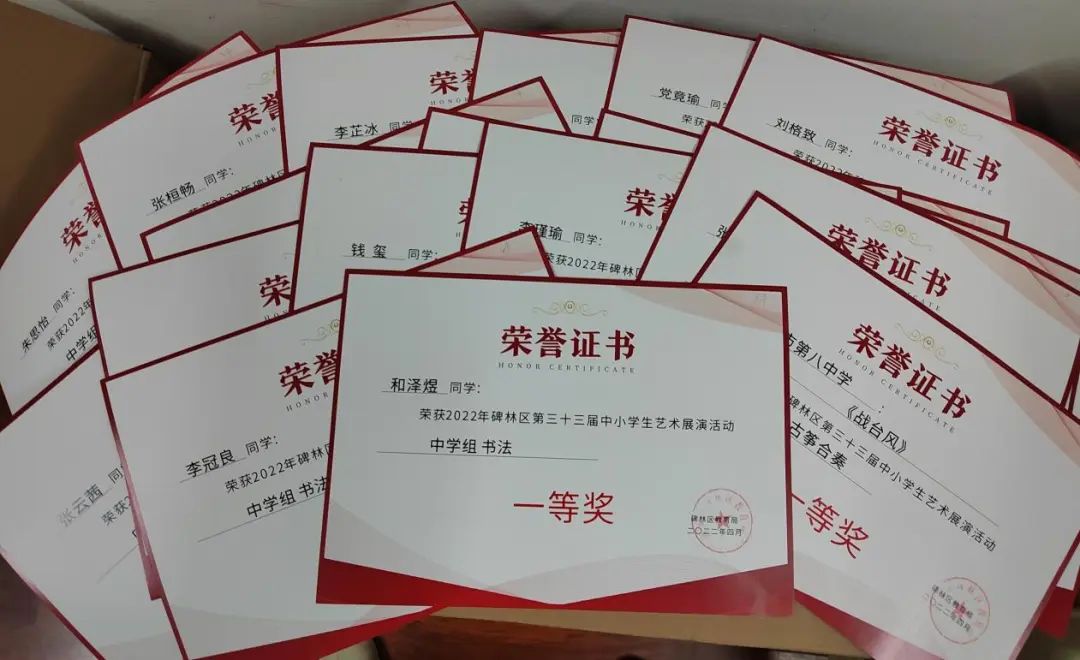 荣誉证书
HONOR CERTIFICATE
和泽煜 同学:
荣获2022年碑林区第三十三届中小学生艺术展演活动
中学组 书法
一等奖
碑林区教育局
二〇二二年四月
荣誉证书
HONOR CERTIFICATE
市第八中学 :
《战台风》
碑林区第三十三届中小学生艺术展演活动
古筝合奏
一等奖
碑林区教育局
二〇二二年四月
荣誉
HONOR
李冠良 同学:
荣获2022年碑
中学组 书法
张云茜 同
荣获
荣
朱思怡 同学:
荣获2022年
中学组
荣誉
HONOR
张桓畅 同学:
荣获2022年碑林区
荣誉
HONOR
李芷冰 同学
荣
钱玺 同学:
荣誉
HONOR
李瑾瑜 同学:
荣获2022年碑林
同学:
党竟瑜 同学
荣获
荣誉证书
HONOR CERTIFICATE
刘格致 同学:
荣获2022年
荣誉证书
张